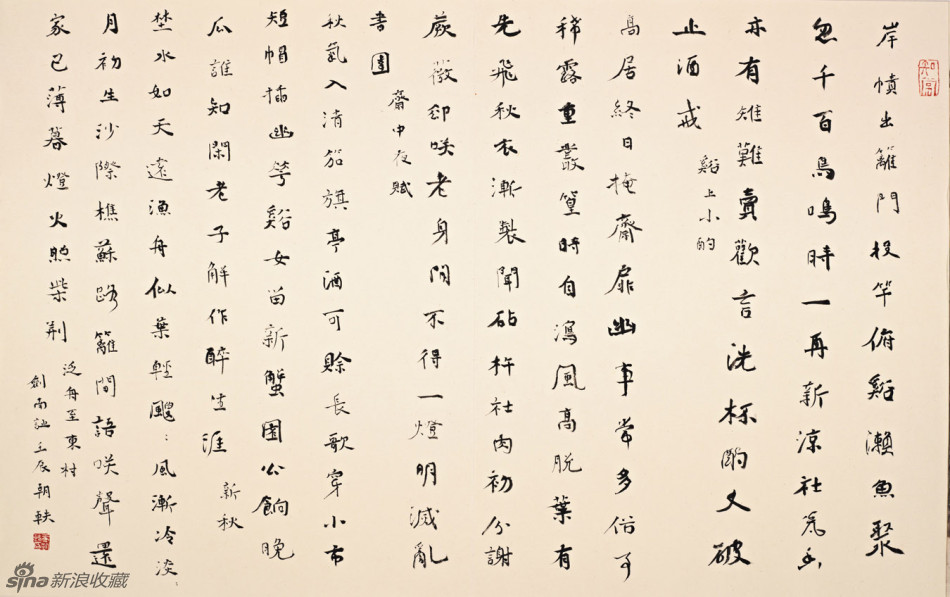 岸幘出籬門投竿俯谿瀨魚聚
忽千百鳥鳴時一再新涼社瓮香
亦有雉難賣歡言洗桮酌又破
止酒戒
谿上小酌
高居終日掩齋扉幽事常多俗事
稀露重叢篁時自瀉風高脫葉有
先飛秋衣漸製聞砧杵社肉初分謝
蕨薇却咲老身閒不得一燈明滅亂
書圍
齋中夜賦
秋氣入清笳旗亭酒可賒長歌穿小市
短帽插幽花谿女留新蟹園公餉晚
瓜誰知閑老子解作醉生涯
新秋
埜水如天遠漁舟似葉輕颼:風漸冷淡
月初生沙際樵蘇路籬間語咲聲還
家已薄暮燈火煦柴荆
泛舟至東村
劍南詩壬辰朝軼
sina新浪收藏